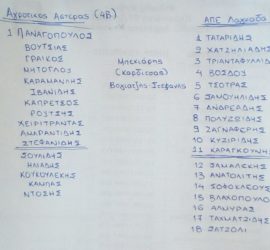 Αγροτικός Αστέρας (4Β)
1 ΠΑΝΑΓΟΠΟΥΛΟΣ
ΒΟΥΤΣΙΑΣ
ΓΡΑΙΚΟΣ
ΝΗΤΟΓΛΟΥ
ΚΑΡΑΜΑΝΛΗΣ
ΙΒΑΝΙΔΗΣ
ΚΑΠΡΕΤΣΟΣ
ΡΟΣΤΣΗΣ
ΧΕΙΡΙΤΡΑΝΤΑΣ
ΑΜΑΡΑΝΤΙΔΗΣ
ΣΤΕΦΑΝΙΔΗΣ
ΣΟΥΛΙΔΗΣ
ΗΛΙΑΔΗΣ
ΚΟΥΚΟΥΛΕΚΗΣ
ΚΑΜΠΑΣ
ΝΤΟΣΗΣ
Μπεκιάρης
(Καρδίτσας)
ΑΠΕ Λαγκαδά
1 ΤΑΤΑΡΙΔΗΣ
2 ΧΑΤΖΗΛΙΑΔΗΣ
3 ΤΡΙΑΝΤΑΦΥΛΛΙΔΗΣ
4 ΒΟΣΔΟΥ
5 ΤΣΟΤΡΑΣ
6 ΣΑΜΟΥΗΛΙΔΗΣ
7 ΑΝΔΡΕΑΔΗΣ
8 ΠΟΛΥΖΩΙΔΗΣ
9 ΖΑΓΝΑΦΕΡΗΣ
10 ΚΥΖΙΡΙΔΗΣ
11 ΚΑΡΑΓΚΟΥΝΗΣ
12 ΣΑΜΑΛΕΚΗΣ
13 ΑΝΑΤΟΛΙΤΗΣ
14 ΣΟΦΟΚΛΕΟΥΣ
15 ΒΛΑΧΟΠΟΥΛΟΣ
16 ΑΛΜΥΡΑΣ
17 ΤΑΧΜΑΤΖΙΔΗΣ
18 ΣΑΤΖΟΛΙ